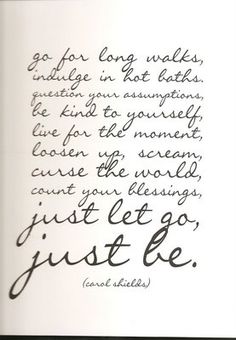 go for long walks,
indulge in hot baths.
question your assumptions,
be kind to yourself,
live for the moment,
loosen up, scream,
curse the world,
count your blessings,
just let go,
just be.
(carol shields)